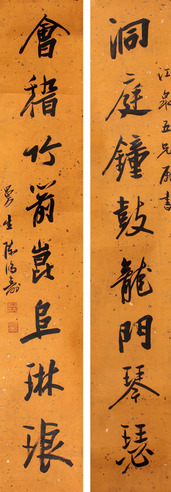 洞庭鐘鼓龍門琴瑟
江泉五兄屬書
會稽竹箭崑阜琳琅
曼生陳鴻壽